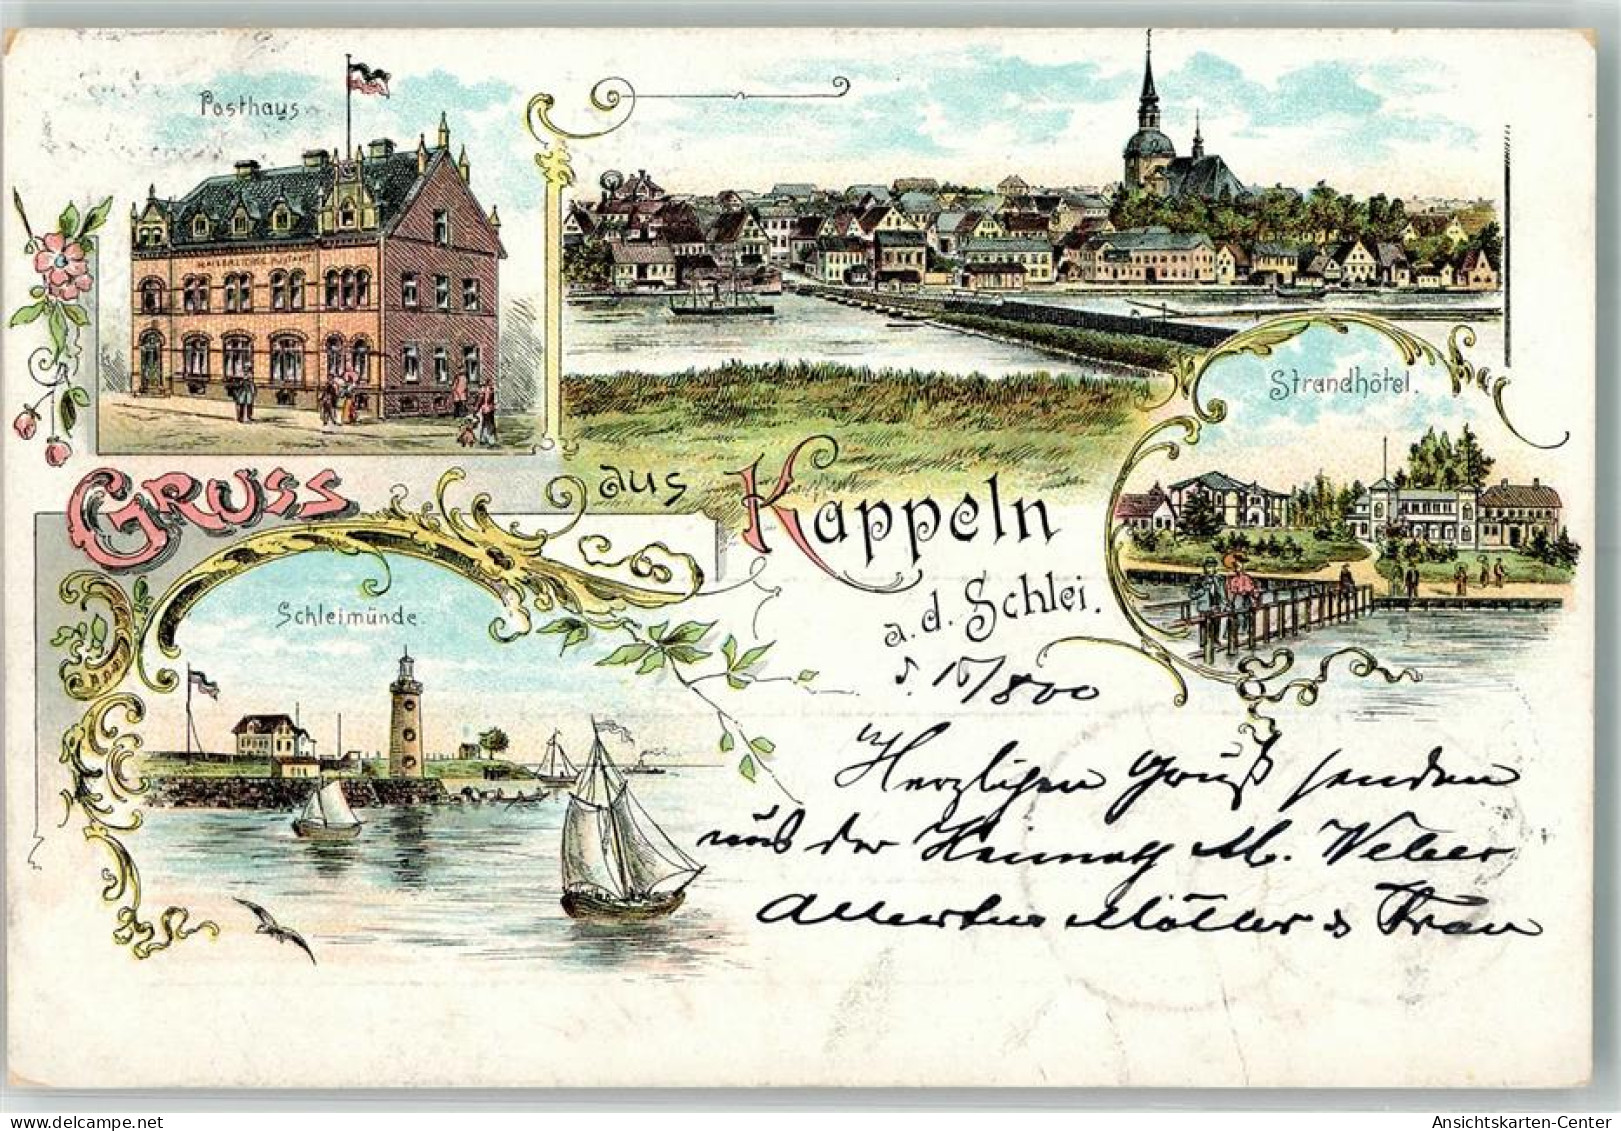 Posthaus
KAISERLICHES POSTAMT
Strandhôtel.
GRUSS aus Kappeln
a. d. Schlei.
Schleimünde.
Herzlichen Gruß senden
aus der Heimath M. Weber
Möller & Frau
Ansichtskarten-Center